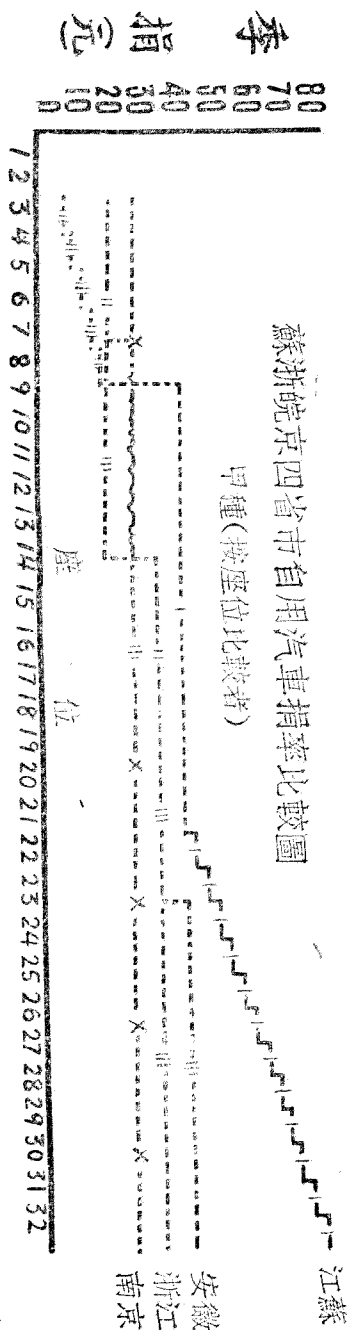 蘇浙皖京四省市自用汽車捐率比較圖
甲種(按座位比較者)
季捐(元)
80
70
60
50
40
30
20
10
0
1 2 3 4 5 6 7 8 9 10 11 12 13 14 15 16 17 18 19 20 21 22 23 24 25 26 27 28 29 30 31 32
座位
江蘇
安徽
浙江
南京